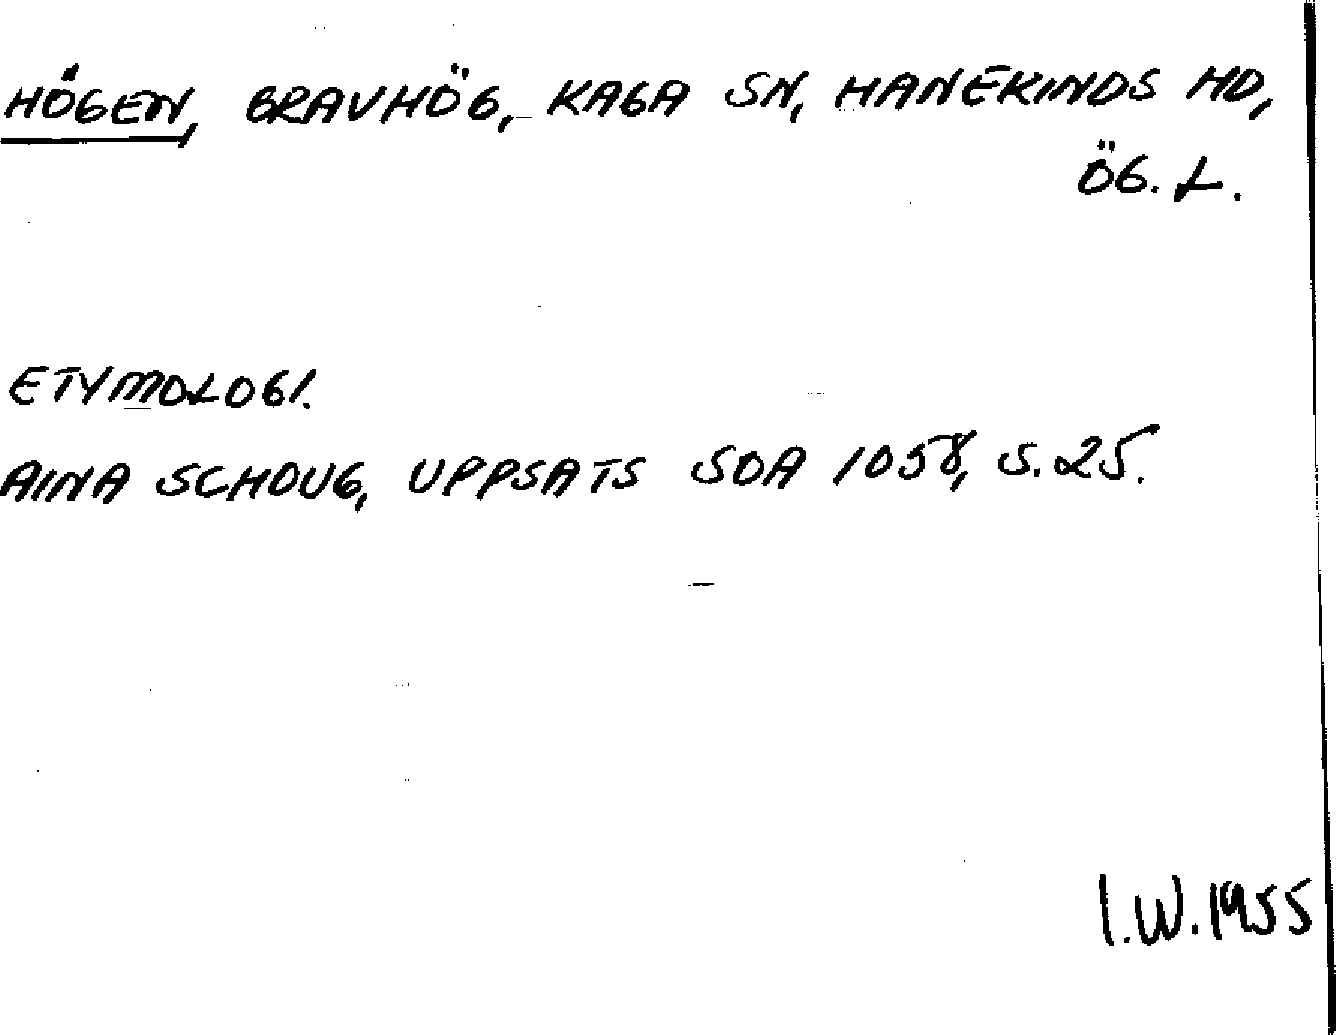 HÖGEN, BRAVHÖG, KAGA SN, HANEKINDS HD,
ÖG. L.
ETYMOLOGI.
AINA SCHOUG, UPPSATS SOA 1058, S. 25.
I.W. 1955